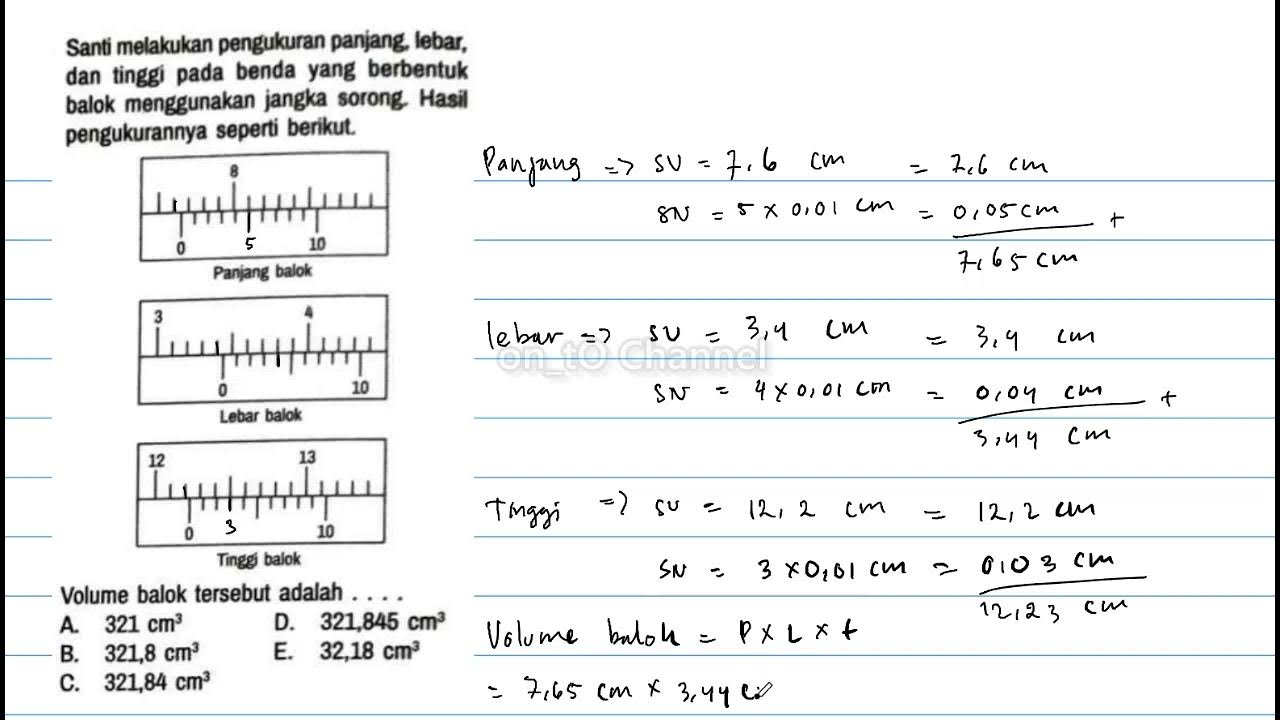 Santi melakukan pengukuran panjang, lebar,
dan tinggi pada benda yang berbentuk
balok menggunakan jangka sorong. Hasil
pengukurannya seperti berikut.
8
0 5 10
Panjang balok
3 4
0 10
Lebar balok
12 13
0 3 10
Tinggi balok
Volume balok tersebut adalah . . . .
A. 321 cm³ D. 321,845 cm³
B. 321,8 cm³ E. 32,18 cm³
C. 321,84 cm³
Panjang => SU = 7,6 cm = 7,6 cm
SN = 5 × 0,01 cm = 0,05 cm +
7,65 cm
lebar => SU = 3,4 cm = 3,4 cm
on_tO Channel
SN = 4 × 0,01 cm = 0,04 cm +
3,44 cm
Tinggi => SU = 12,2 cm = 12,2 cm
SN = 3 × 0,01 cm = 0,03 cm
12,23 cm
Volume balok = P × L × t
= 7,65 cm × 3,44 c